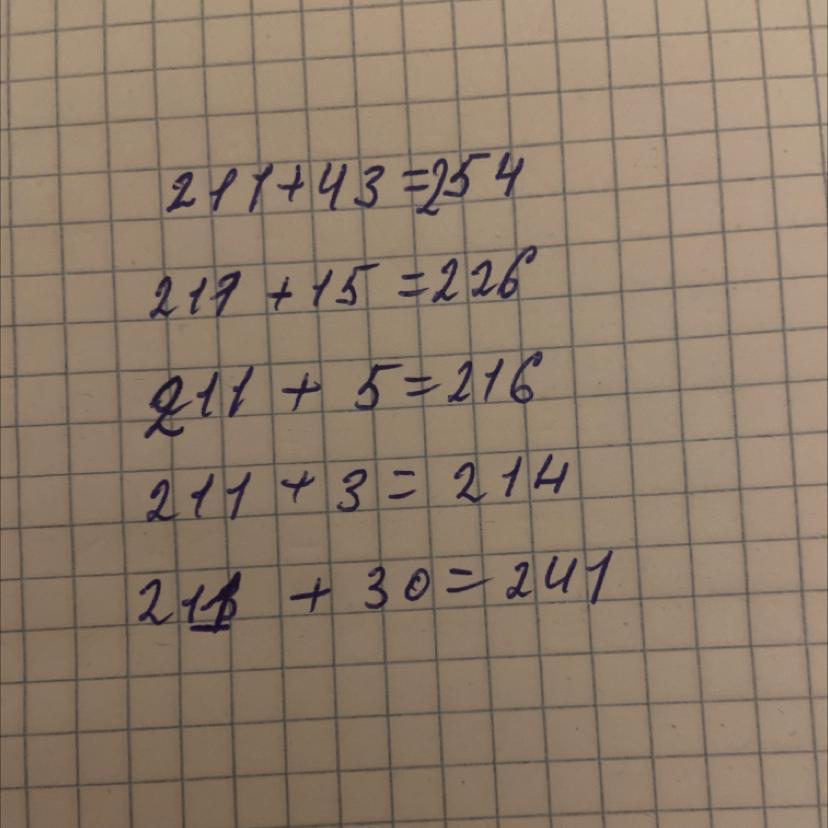 211+43=254
211+15=226
211+5=216
211+3=214
211+30=241